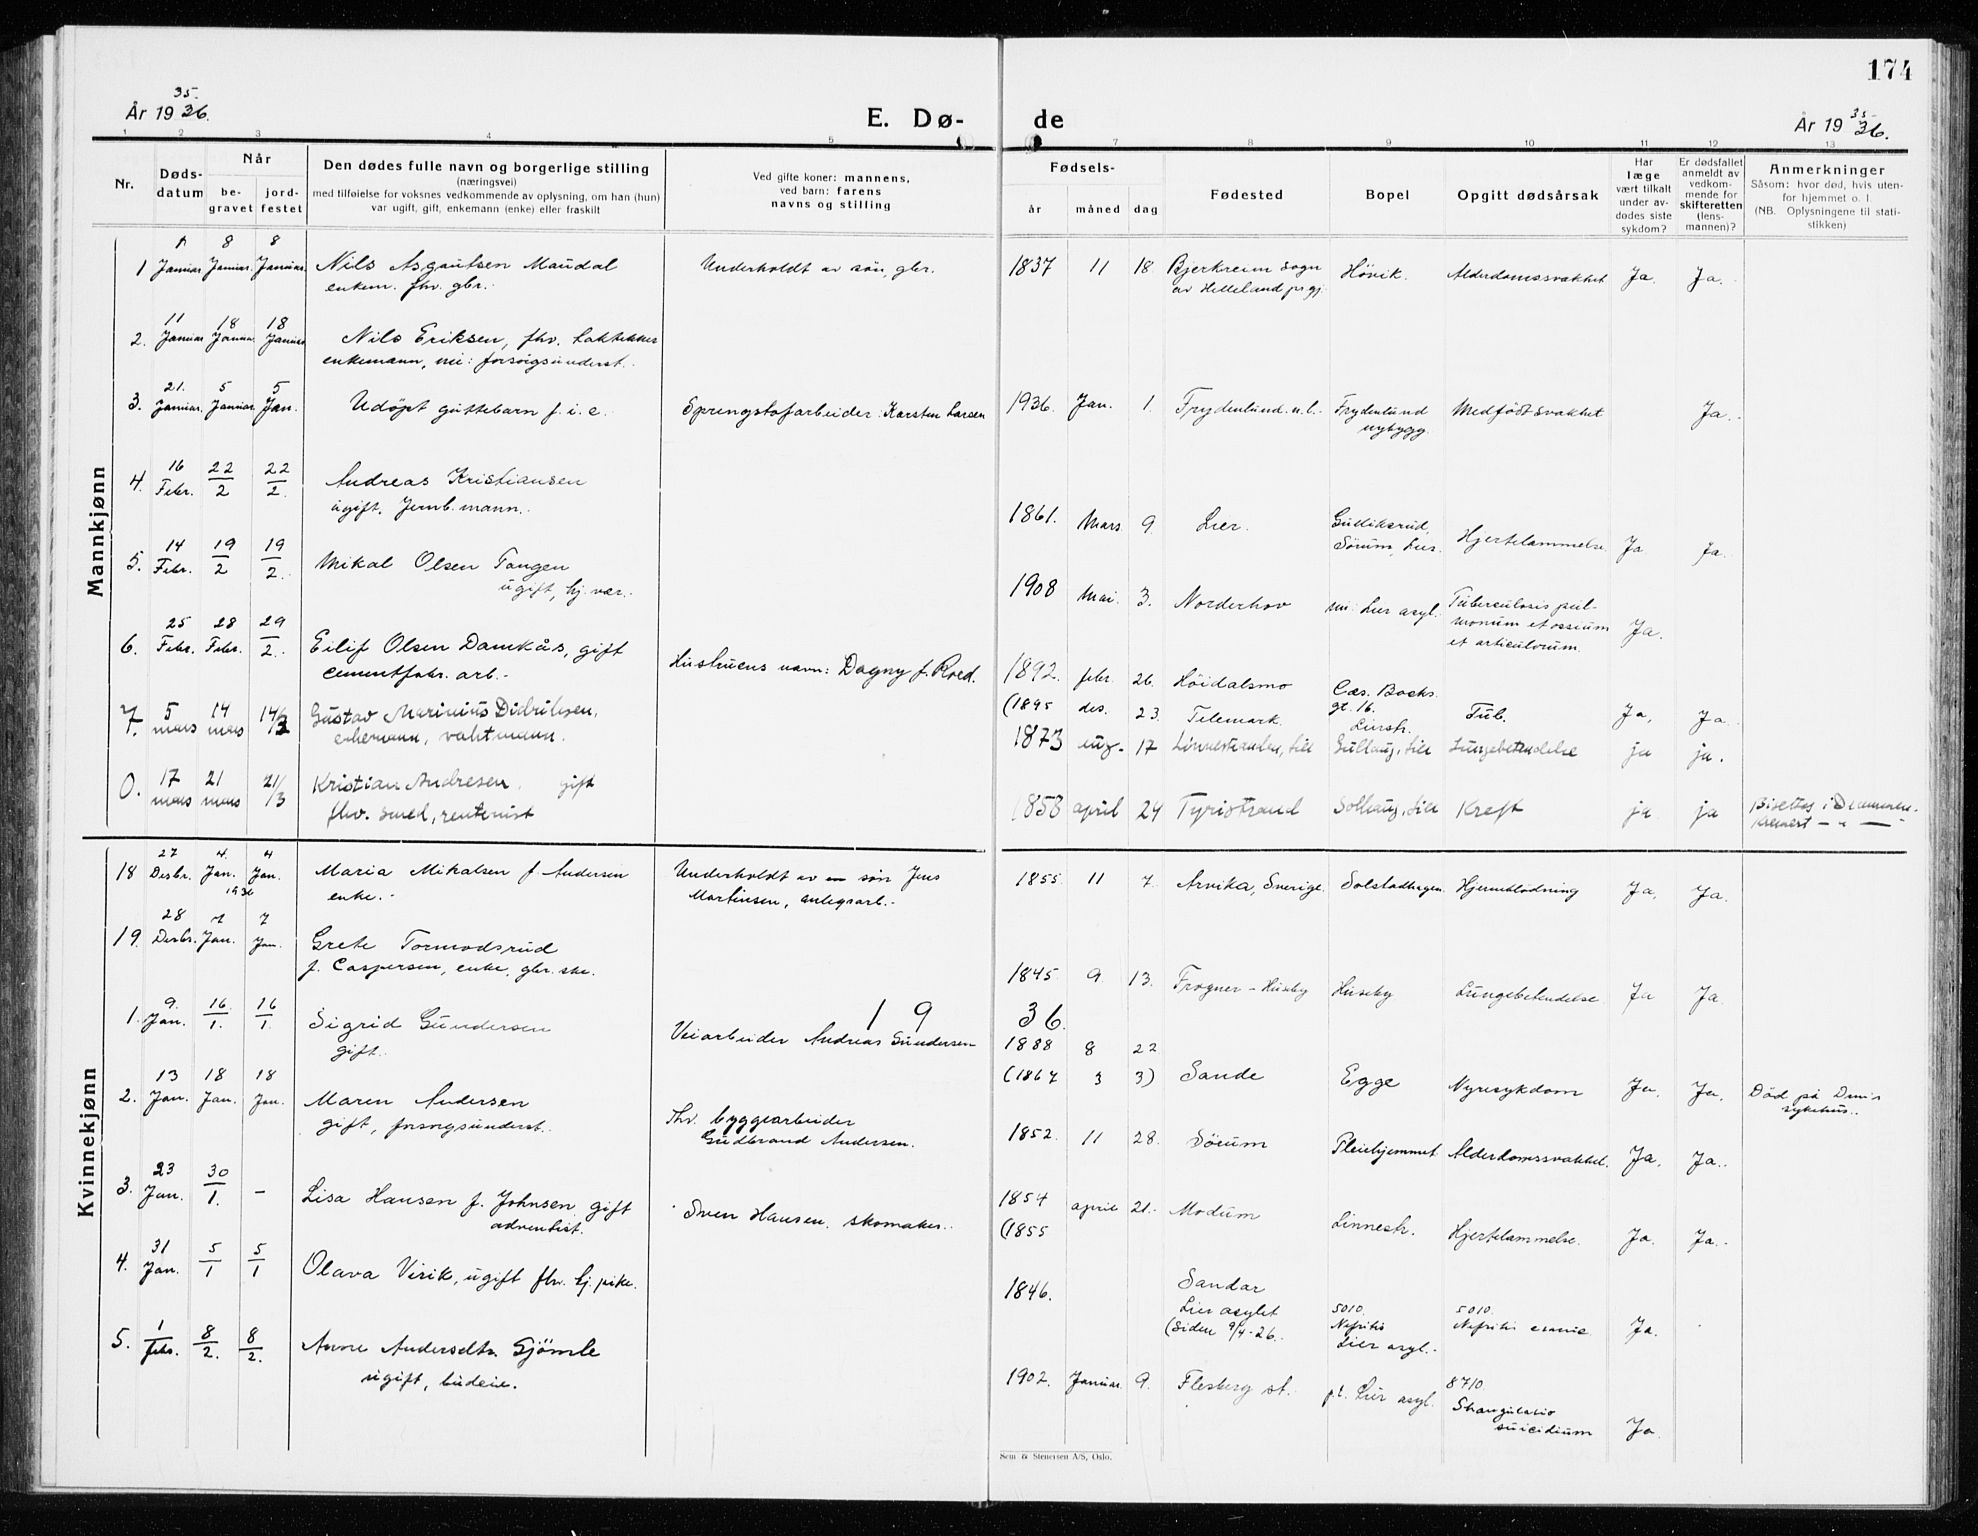 174
35.
År 1936.
E. Dø-
de
35
År 1936.
1 2 3 4 5
7 8 9 10 11 12 13
Nr.
Døds-
datum
Når
be-
gravet
jord-
festet
Den dødes fulle navn og borgerlige stilling
(næringsvei)
med tilføielse for voksnes vedkommende av oplysning, om han (hun)
var ugift, gift, enkemann (enke) eller fraskilt
Ved gifte koner: mannens,
ved barn: farens
navns og stilling
Fødsels-
år måned dag
Fødested
Bopel
Opgitt dødsårsak
Har
læge
vært tilkalt
under av-
dødes siste
sykdom?
Er dødsfallet
anmeldt av
vedkom-
mende for
skifteretten
(lens-
mannen)?
Anmerkninger
Såsom: hvor død, hvis uten-
for hjemmet o. l.
(NB. Oplysningene til stati-
stikken)
Mannkjønn
8 8
1 Januar Januar. Januar. Nils Asgautsen Maudal Underholdt av søn, gbr. 1837 11 18. Bjerkreim sogn Hövik. Alderdomssvakhet Ja. Ja.
enkem. fhv. gbr. av Helleland prgj.
11 18 18
2. Januar Januar Januar Nils Eriksen, fhv.
enkemann, forsörgsunderst.
21. 5 5
3. Januar. Januar. Jan. Udöpt guttebarn f. i. e. Sprengstofarbeider Karsten Larsen 1936. Jan. 1. Frydenlund n.l. Frydenlund Medfödt svakhet Ja.
nybygg.
16 22 22
4. Febr. 2 2. Andreas Kristiansen
ugift. Jernb. mann. 1861. Mars 9. Lier. Gulliksrud, Hjertelammelse Ja Ja.
Sørum, Lier.
14 19 19
5. Febr. 2 2. Mikal Olsen Tangen
ugift, hj. vær. 1908 Mai. 3. Norderhov Lier asyl. Tuberculosis pul-
monum et ossium Ja.
et articulorum.
25 28 29
6. Febr. Febr. 2. Eilif Olsen Damkås, gift Hustruens navn: Dagny f. Roed. 1892. febr. 26. Höidalsmo Cæs. Bachs.
cementfabr. arb. (1895 des. 23. Telemark. gt. 16. Tub. Ja, Ja
Lierstr.
5 14 14/3
7. mars mars Gustav Marinius Didriksen,
enkemann, vaktmann. 1873 aug. 17 Linnestranden, Lier Gullaug, Lier Lungebetendelse ja ja.
17 21 21/3
mars mars Kristian Andresen. gift
fhv. smed, rentenist 1858 april 24 Tyristrand Solhaug, Lier Kreft ja ja Bisettes i Drammen.
Kremert — " —
Kvinnekjønn
27 4. 4
18 Desbr. Jan. Jan. Maria Mikalsen f. Andersen Underholdt av søn Jens 1855 11 7. Arvika, Sverige. Solstadhagen Hjerneblödning Ja, Ja.
1936 enke. Martinsen, anlegsarb.
28 7 7
19. Desbr. Jan. Jan. Grete Tormodsrud
f. Caspersen, enke, gbr. ske. 1845 9 13. Frogner - Huseby Huseby Lungebetendelse Ja Ja.
1936.
9. 16. 16
1. Jan. 1. 1. Sigrid Gundersen Veiarbeider Andreas Gundersen 1888 8 22
gift. (1867 3 3) Sande Egge Nyresykdom Ja, Ja, Död på Drm's
sykehus.
13 18 18
2. Jan. Jan. Jan. Maren Andersen Fhv. byggearbeider 1852. 11 28. Sörum Pleiehjemmet Alderdomssvakhet. Ja, Ja.
gift, forsorgsunderst. Gudbrand Andersen.
23 30
3. Jan. 1. – Lisa Hansen f. Johnsen, gift Sven Hansen. skomaker. 1854 april 21. Modum Linnestr. Hjertelammelse. Ja. Ja.
adventist. (1855
31 5 5
4. Jan. 1 1 Olava Virik, ugift fhv. hj. pike. 1846. Sandar
Lier asylet 5010. 5010.
(Siden 9/4-26. Nefritis Nefritis Ja.
Lier asyl.
1 8 8
5. Febr. 2. 2. Anne Andersdtr. Gjömle 1902. Januar. 9. Flesberg st. p.t. Lier asyl. 8710.
ugift, budeie. Strangulatio
suicidium Ja.
Sem & Stenersen A/S, Oslo.